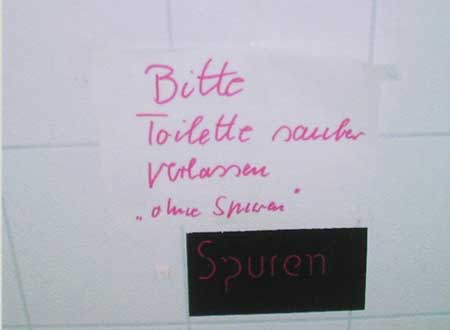 Bitte
Toilette sauber
verlassen
„ohne Spuren"
Spuren